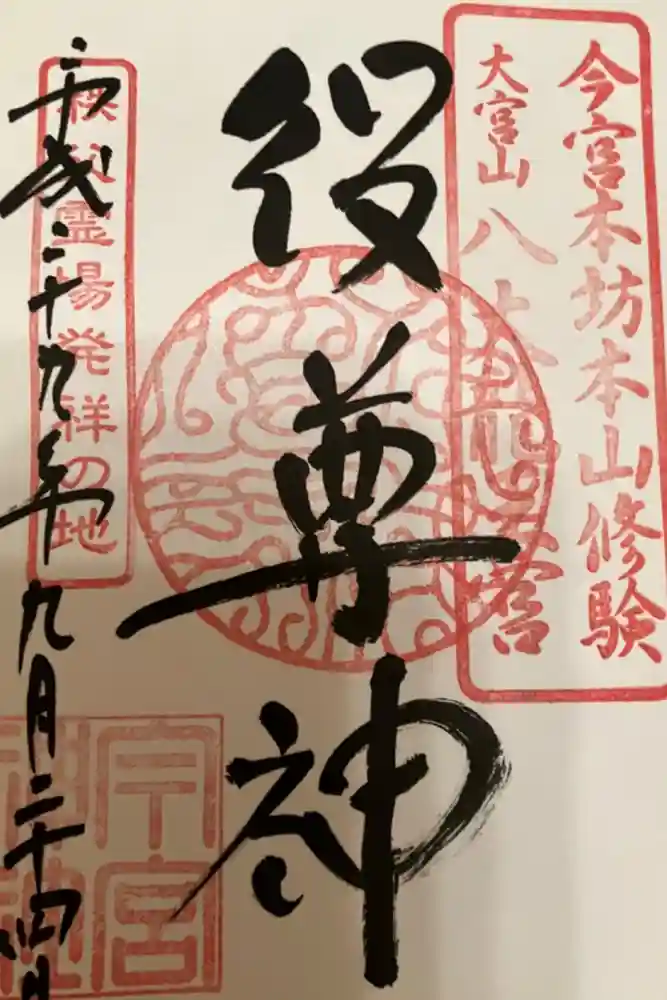 今宮本坊本山修験
大宮山八大龍宮
役尊神
秩父霊場発祥の地
平成二十九年九月二十四日
今宮